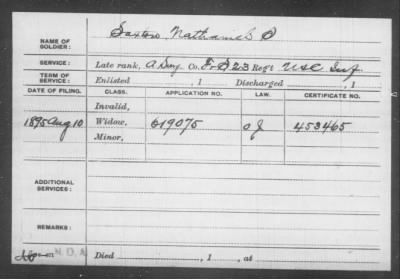 NAME OF SOLDIER: Saxton, Nathaniel
SERVICE: Late rank, Co. 23 Reg't USC Inf.
TERM OF SERVICE: Enlisted , 1 Discharged , 1
DATE OF FILING. CLASS. APPLICATION NO. LAW. CERTIFICATE NO.
Invalid,
1895 Aug 10 Widow, 619075 453465
Minor,
ADDITIONAL SERVICES:
REMARKS:
N.D.A.
Died , 1 , at